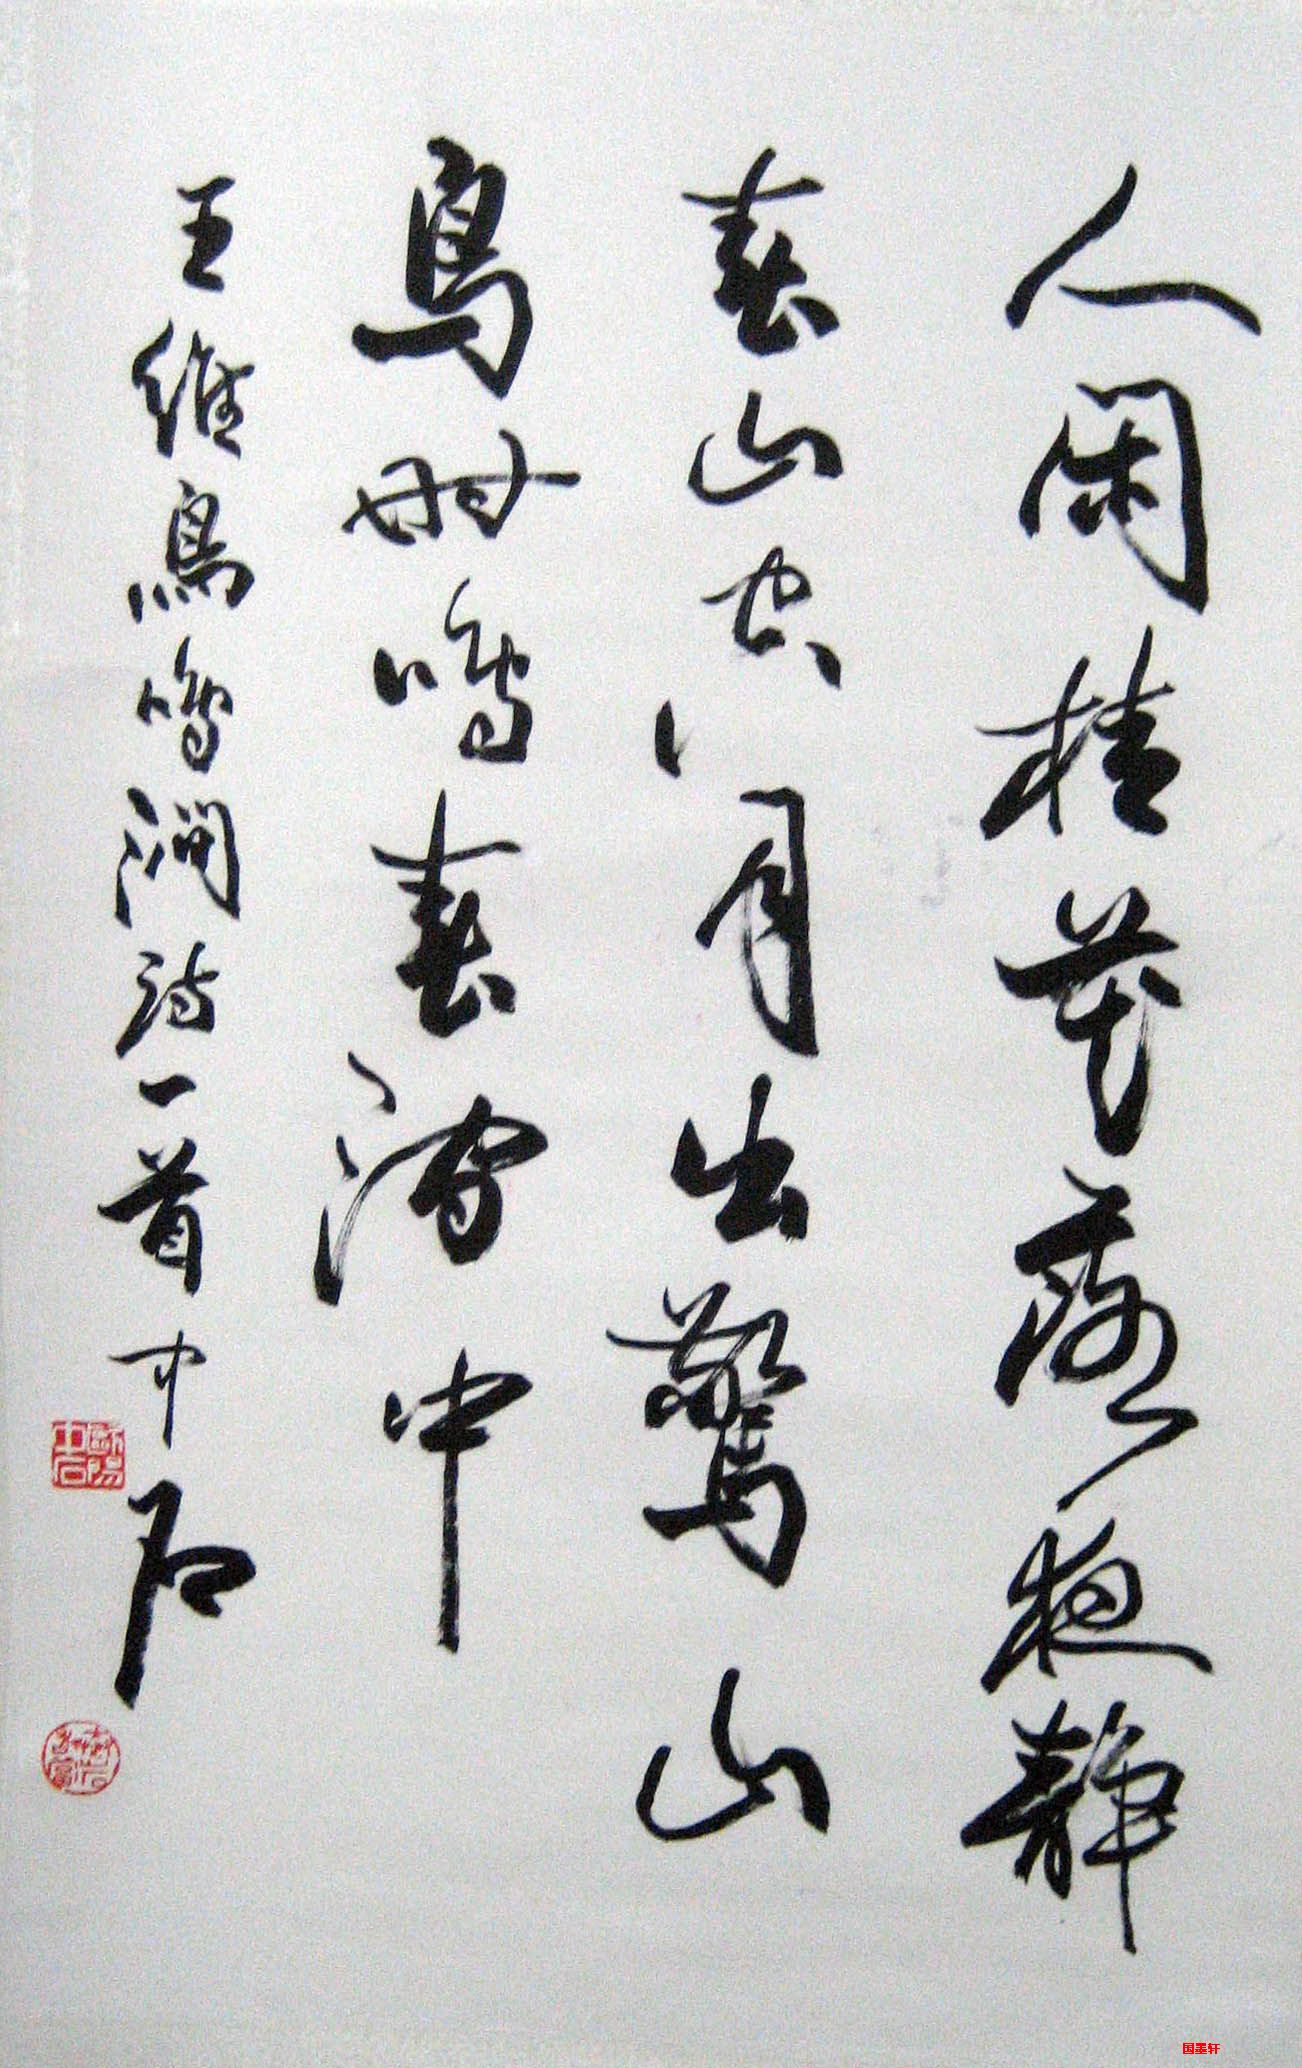 人閑桂花落夜静
春山空月出驚山
鳥時鳴春澗中
王維鳥鳴澗詩一首中石
歐陽中石
国墨轩